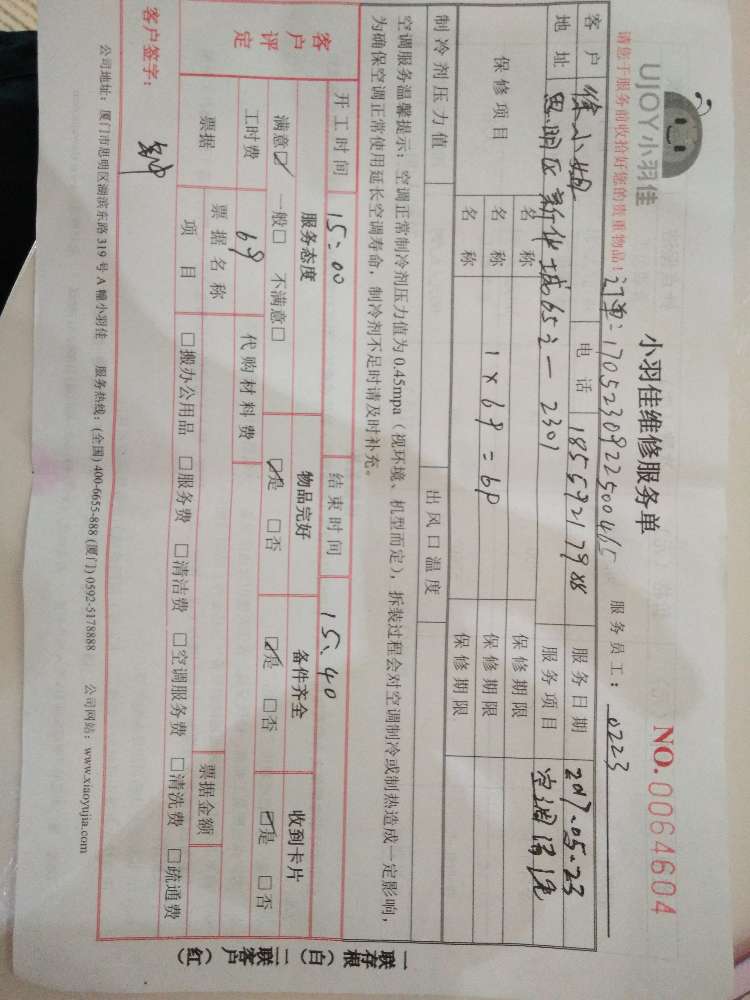 UJOY小羽佳
小羽佳维修服务单
NO.0064604
请您于服务前收拾好您的贵重物品!
订单:17052309225 00465
服务员工:0223
客户 徐小姐 电话 18559217988 服务日期 2017.05.23
地址 思明区新华城65之一2301 服务项目 空调清洗
保修项目 名称 保修期限
名称 1×69=69 保修期限
名称 保修期限
制冷剂压力值 出风口温度
空调服务温馨提示:空调正常制冷剂压力值为0.45mpa(视环境、机型而定),拆装过程会对空调制冷或制热造成一定影响,
为确保空调正常使用延长空调寿命,制冷剂不足时请及时补充。
开工时间 15:00 结束时间 15:40
客户评定 服务态度 物品完好 备件齐全 收到卡片
满意☑ 一般□ 不满意□ ☑是 □否 ☑是 □否 ☑是 □否
工时费 69 代购材料费
票据 票据名称 票据金额
项目 □搬办公用品 □服务费 □清洁费 □空调服务费 □清洗费 □疏通费
客户签字:
公司地址:厦门市思明区湖滨东路319号A幢小羽佳 服务热线:(全国)400-6655-888 (厦门)0592-5178888 公司网站:www.xiaoyujia.com
一联存根(白)二联客户(红)